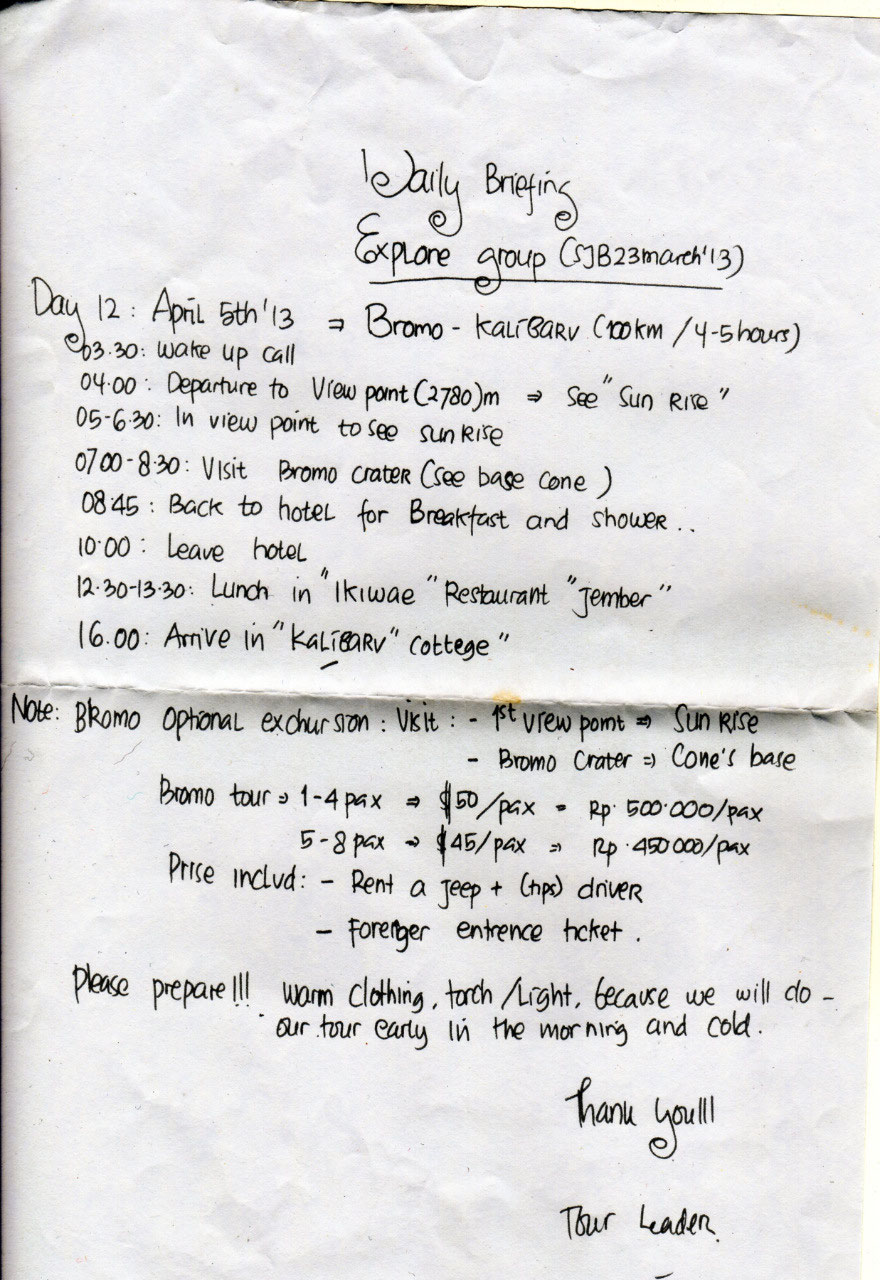 Daily Briefing
Explore group (SJB23march'13)
Day 12 : April 5th'13 ⇒ Bromo - Kalibaru (100km / 4-5hours)
03.30: wake up call
04.00 : Departure to View point (2780)m ⇒ see "Sun Rise"
05-6.30: In view point to see sunrise
07.00-8.30: Visit Bromo crater (see base cone)
08.45 : Back to hotel for Breakfast and shower..
10.00 : Leave hotel
12.30-13.30: Lunch in "Ikiwae" Restaurant "Jember"
16.00: Arrive in "Kalibaru" Cottege"
Note: Bromo optional exchursion : Visit : - 1st view point ⇒ Sun Rise
- Bromo Crater ⇒ Cone's base
Bromo tour ⇒ 1-4 pax ⇒ $50/pax = Rp. 500.000/pax
5-8 pax ⇒ $45/pax ⇒ Rp. 450 000/pax
Prise Includ: - Rent a jeep + (tips) driver
- Forenger entrence ticket.
Please prepare!!! warm clothing, torch /Light, because we will do -
our tour early in the morning and cold.
Thank you!!!
Tour Leader.